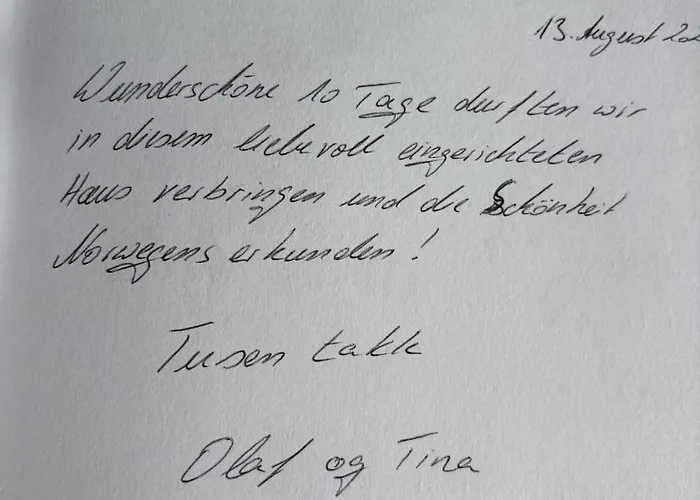 13. August 202
Wunderschöne 10 Tage durften wir
in diesem liebevoll eingerichteten
Haus verbringen und die Schönheit
Norwegens erkunden!
Tusen takk
Olaf og Tina